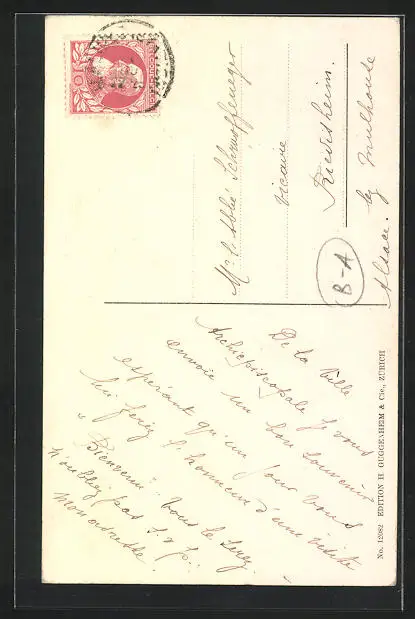 Mr l'Abbé Schmoffeneger
vicaire
Riedisheim.
by Mulhouse
Alsace.
B-A
De la Ville
Archiépiscopale je vous
envoie un bon souvenir
espérant qu'un jour vous
lui ferez l'honneur d'une visite
« Bienvenu » vous le serez.
n'oubliez pas s. v. p.
Mon adresse.
No. 12082 EDITION H. GUGGENHEIM & Cie., ZURICH
10